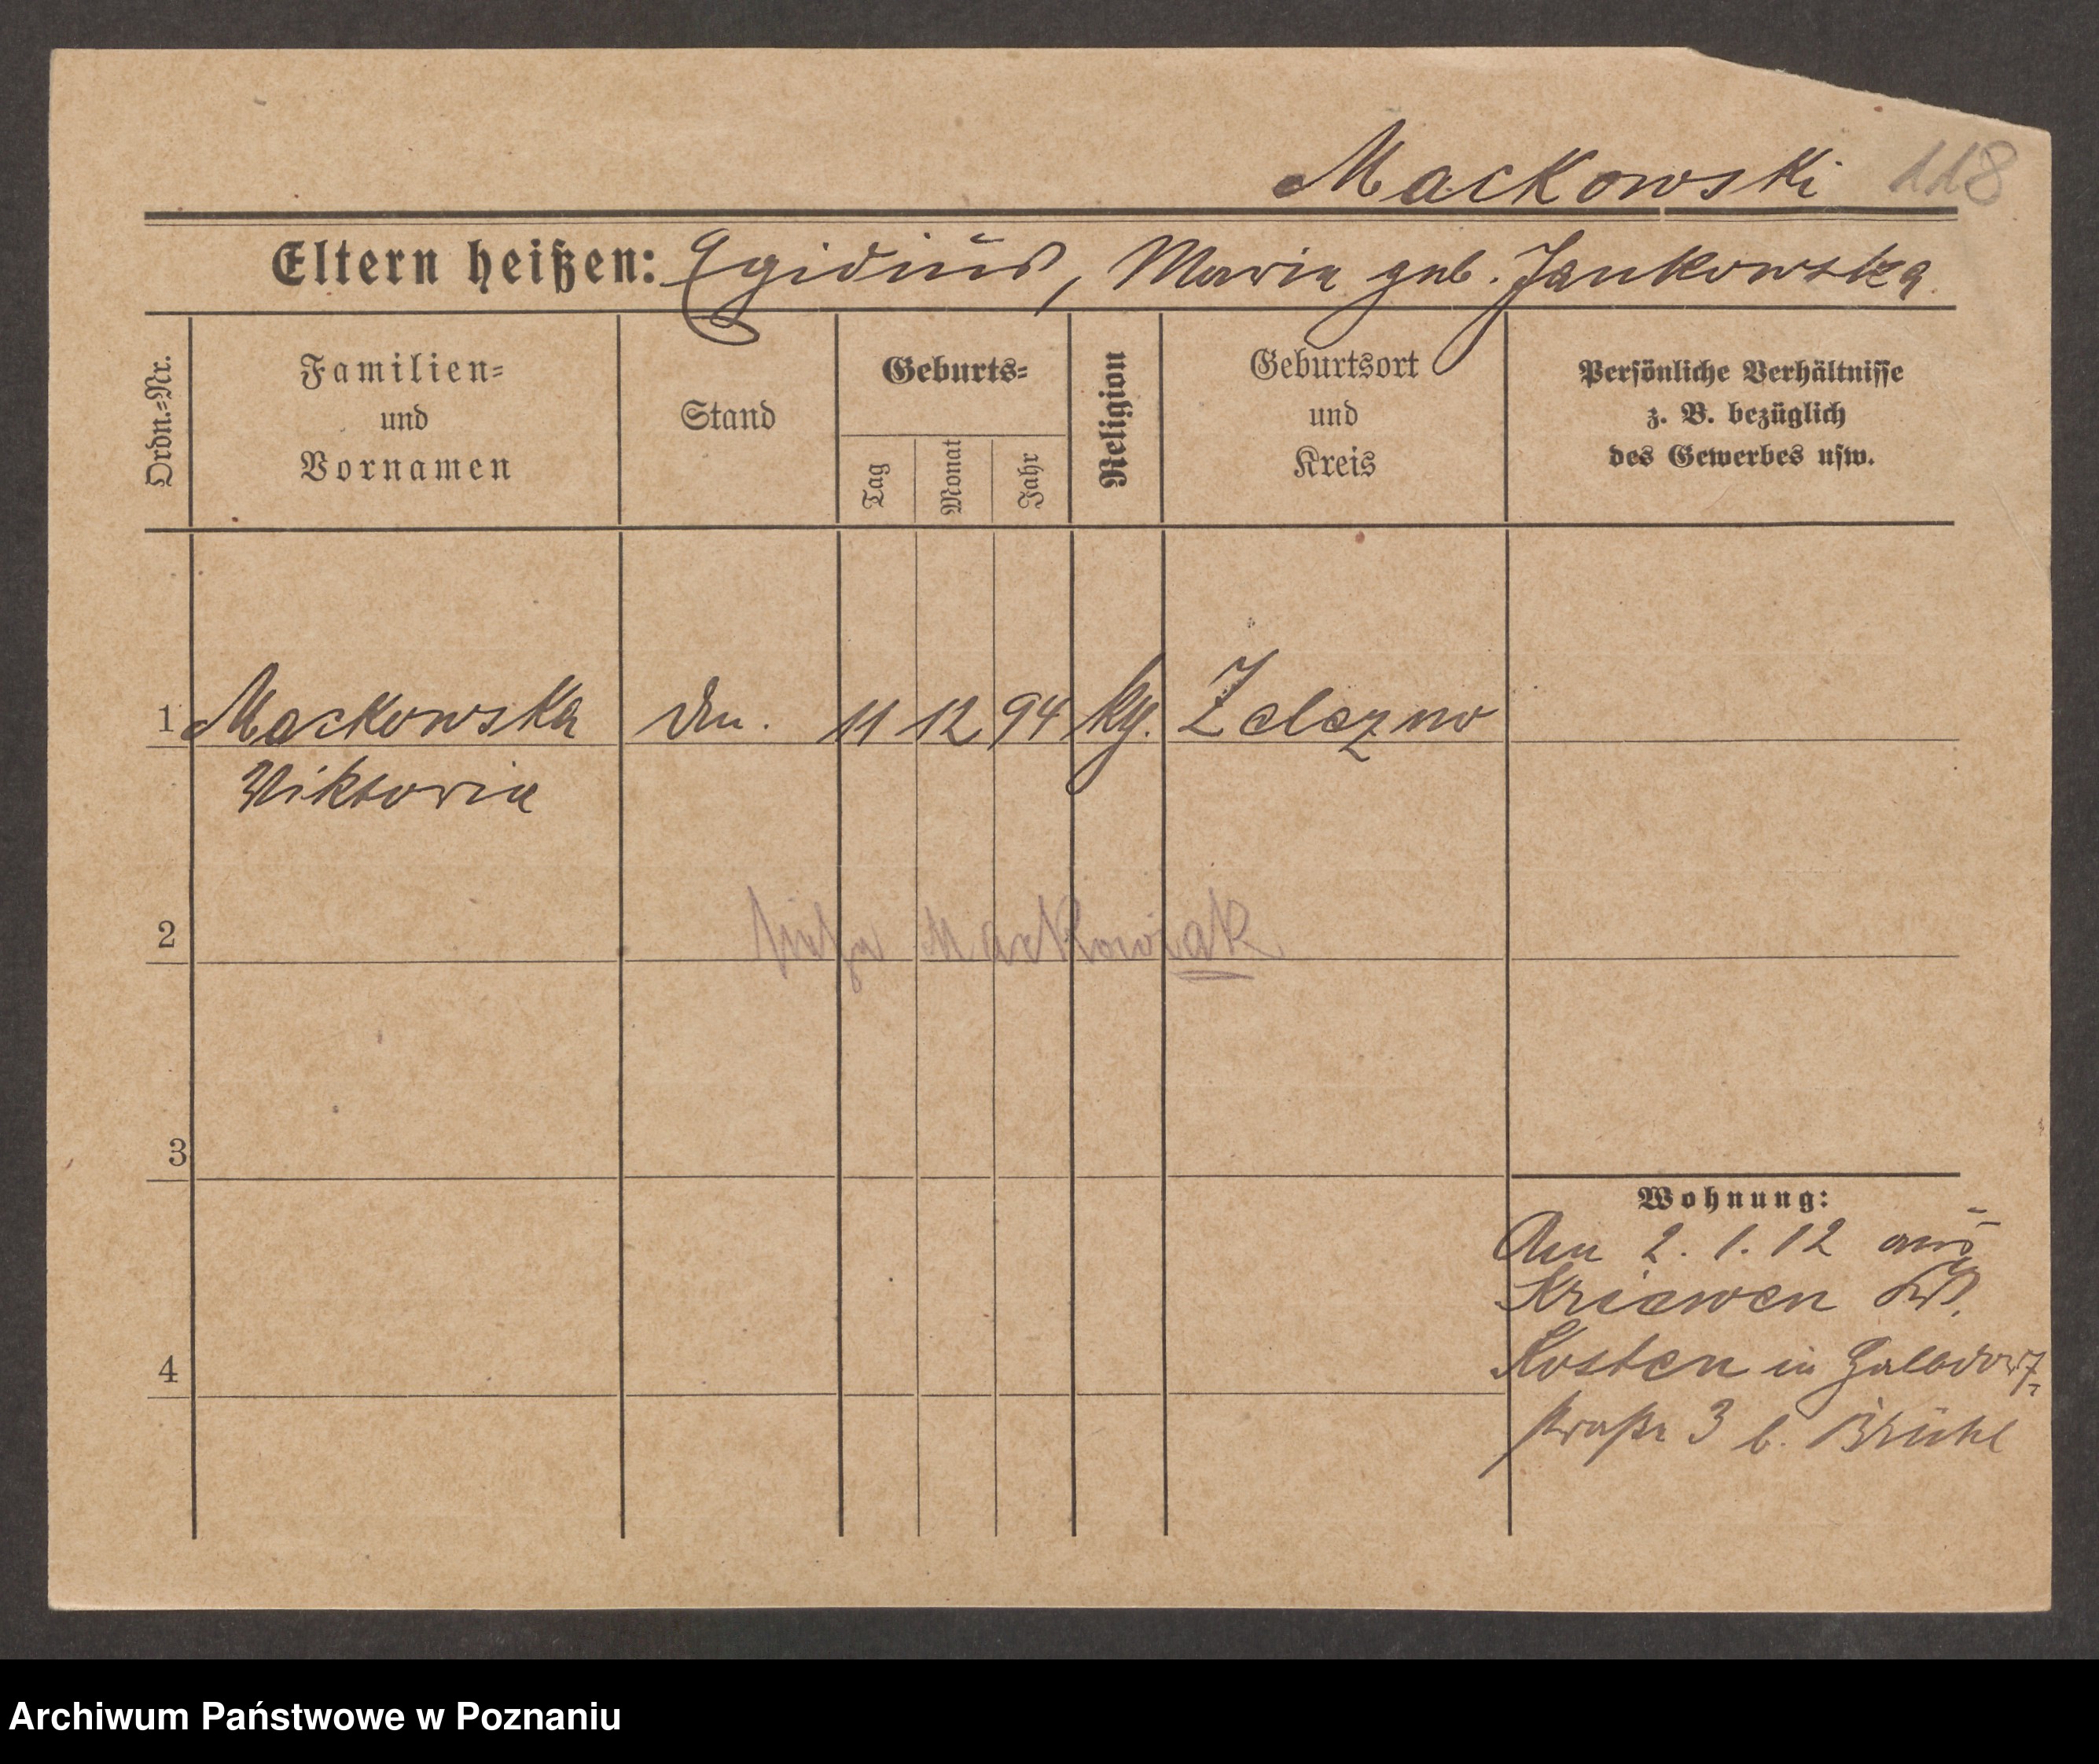 Mackowski 118
Eltern heißen: Egidius, Maria geb. Jankowska
Ordn.=Nr.
Familien=
und
Vornamen
Stand
Geburts=
Tag
Monat
Jahr
Religion
Geburtsort
und
Kreis
Persönliche Verhältnisse
z. B. bezüglich
des Gewerbes usw.
1 Mackowska 11 12 94 Zelazno
Viktoria
siehe Mackowiak
2
3
4
Wohnung:
Am 2. 1. 12 aus
Kriewen
Kosten in
straße 3 b. Brühl
Archiwum Państwowe w Poznaniu